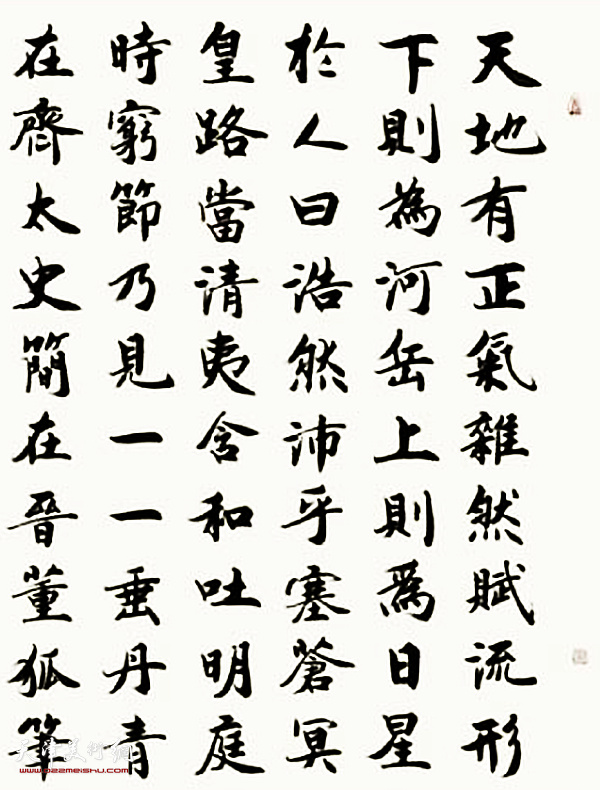 天地有正氣雜然賦流形
下則為河岳上則為日星
於人曰浩然沛乎塞蒼冥
皇路當清夷含和吐明庭
時窮節乃見一一垂丹青
在齊太史簡在晉董狐筆
www.022meishu.com